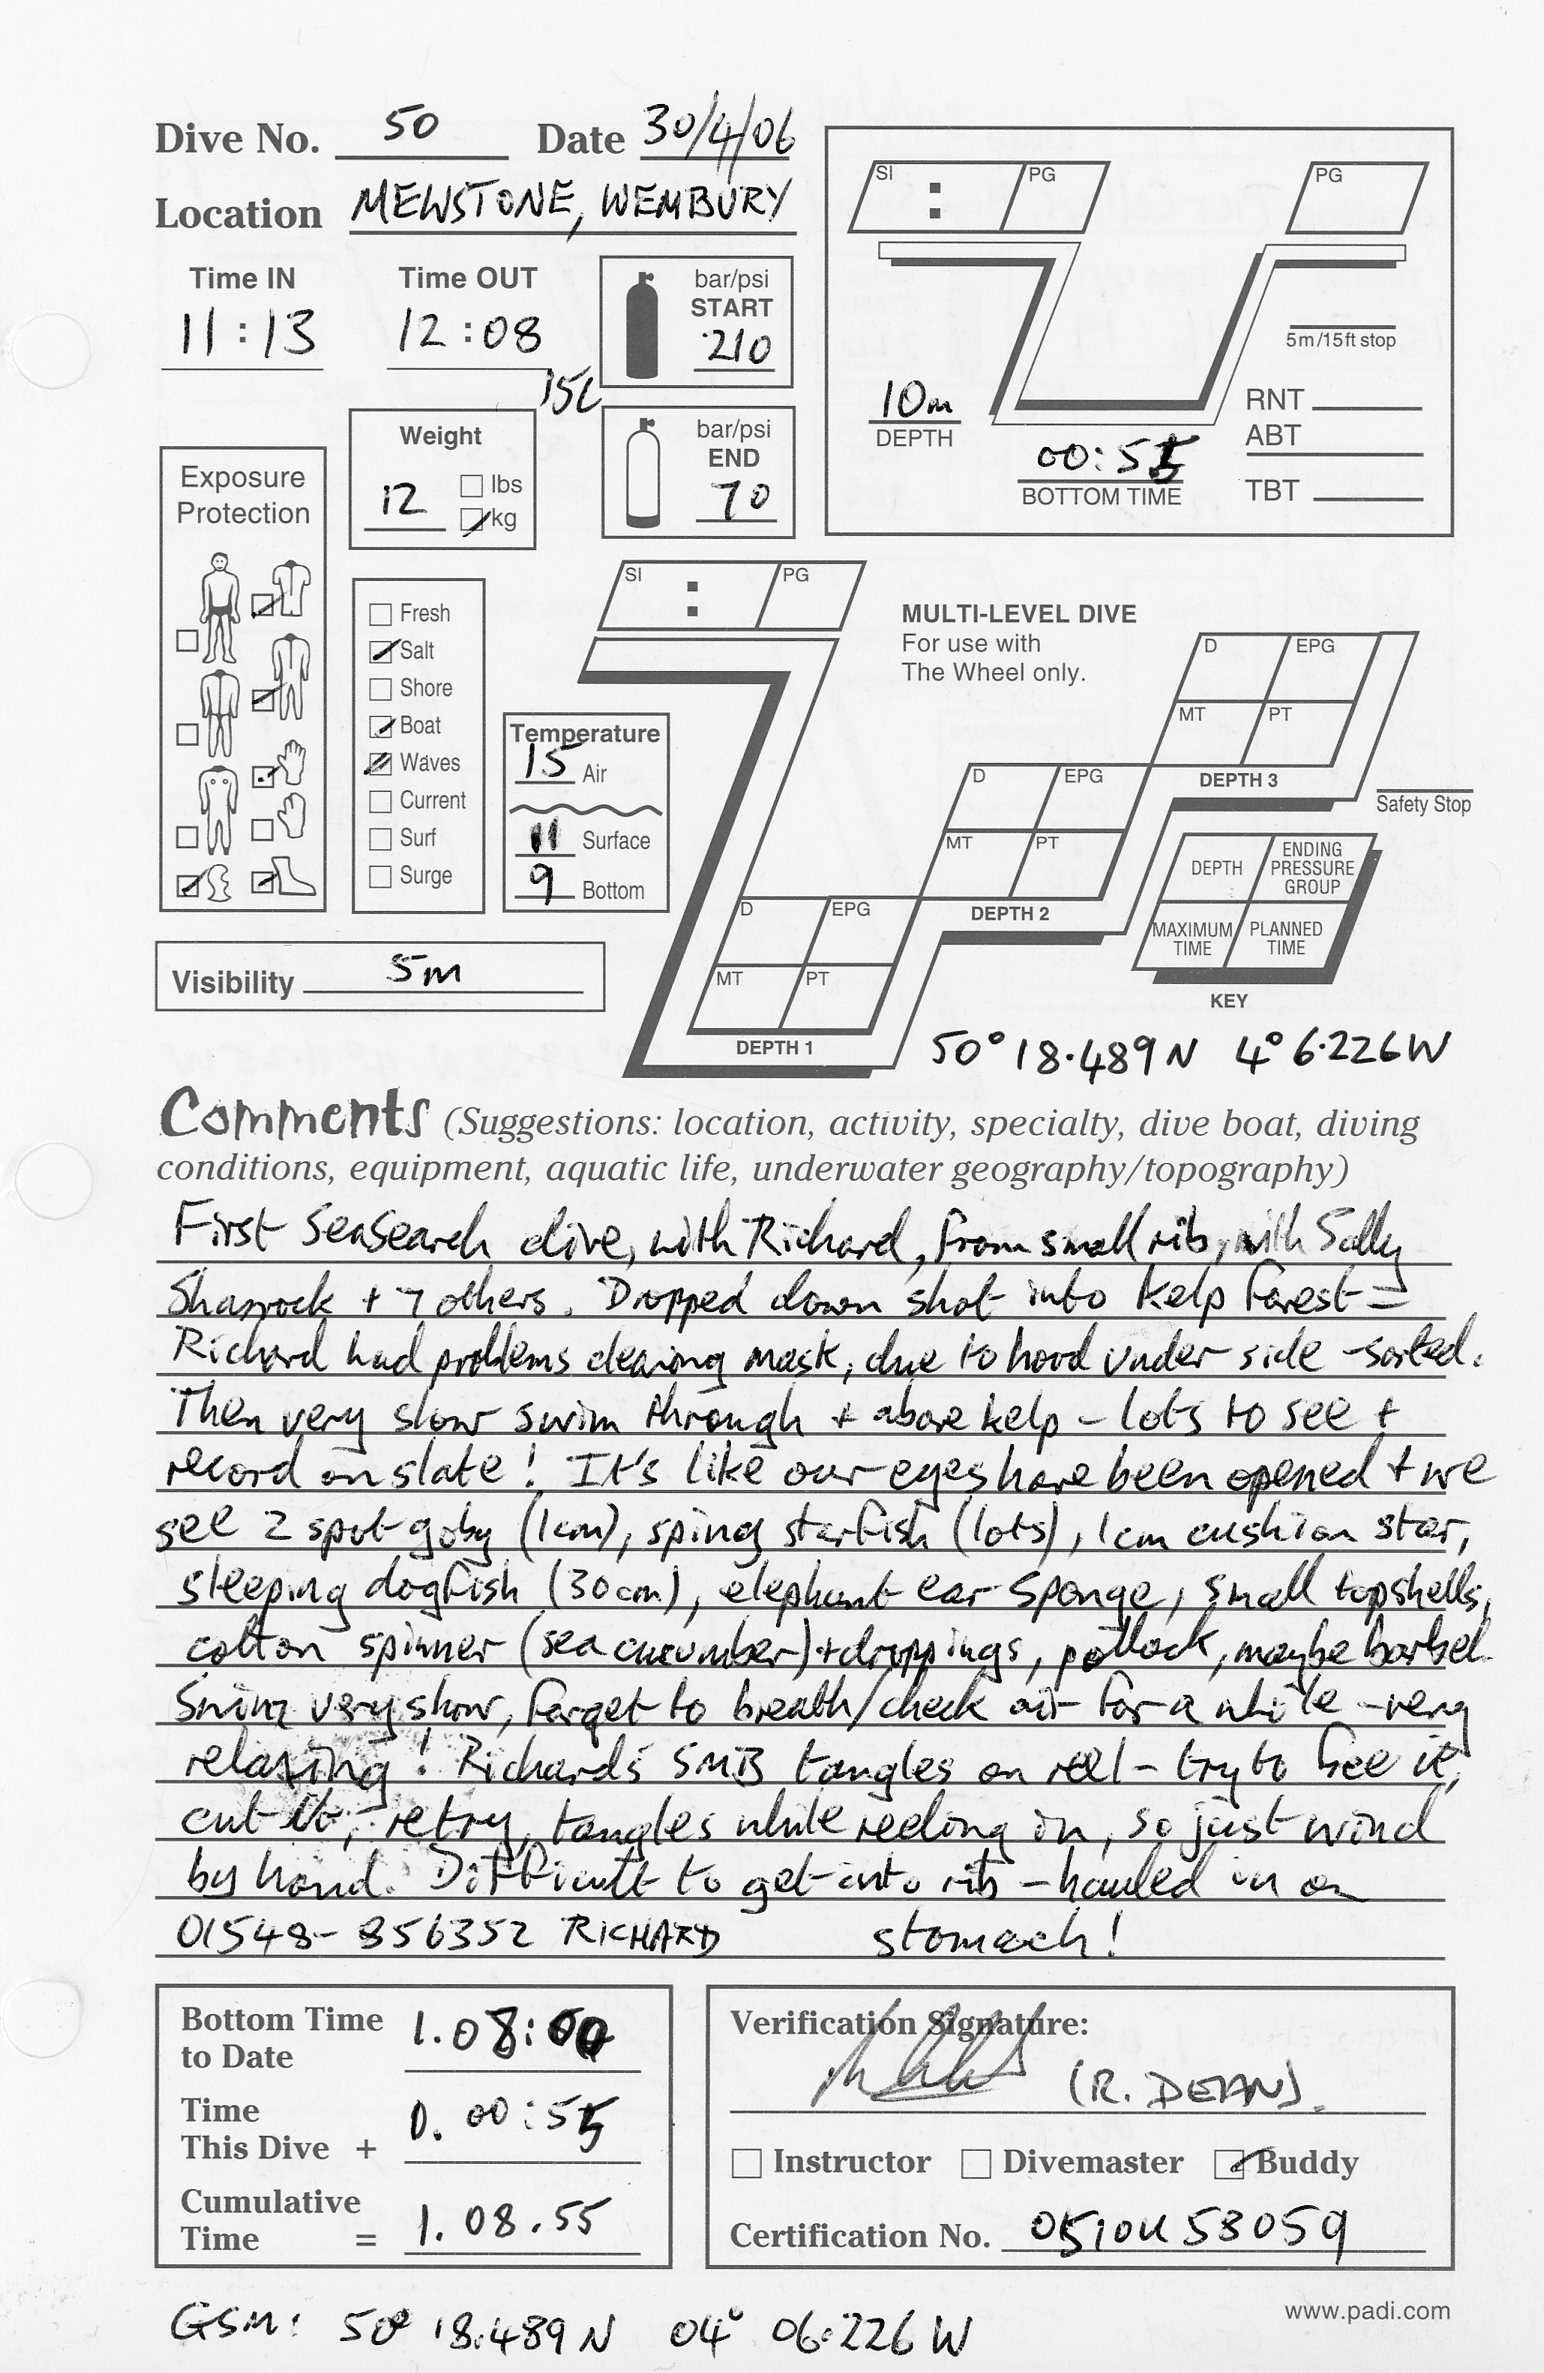 Dive No. 50 Date 30/4/06
Location MEWSTONE, WEMBURY
Time IN Time OUT
11:13 12:08
15L
bar/psi
START
210
bar/psi
END
70
Weight
12
lbs
kg
Exposure
Protection
Fresh
Salt
Shore
Boat
Waves
Current
Surf
Surge
Temperature
15 Air
11 Surface
9 Bottom
Visibility 5m
SI : PG PG
5m/15ft stop
10m
DEPTH
00:55
BOTTOM TIME
RNT
ABT
TBT
SI : PG
MULTI-LEVEL DIVE
For use with
The Wheel only.
D EPG
MT PT
DEPTH 3
Safety Stop
D EPG
MT PT
DEPTH 2
D EPG
MT PT
DEPTH 1
DEPTH ENDING PRESSURE GROUP
MAXIMUM TIME PLANNED TIME
KEY
50° 18.489N 4° 6.226W
Comments (Suggestions: location, activity, specialty, dive boat, diving
conditions, equipment, aquatic life, underwater geography/topography)
First Seasearch dive, with Richard, from small rib, with Sally
Sharrock + 7 others. Dropped down shot into kelp forest –
Richard had problems clearing mask, due to hood under side – sorted.
Then very slow swim through + above kelp – lots to see +
record on slate! It's like our eyes have been opened + we
see 2 spot goby (1cm), spiny starfish (lots), 1cm cushion star,
sleeping dogfish (30cm), elephant ear sponge, small topshells,
cotton spinner (sea cucumber) + droppings, pollock, maybe barbel.
Swim very slow, forget to breath/check air for a while – very
relaxing! Richard's SMB tangles on reel – try to free it,
cut it, retry, tangles while reeling in, so just wind
by hand. Difficult to get into rib – hauled in on
01548-856352 RICHARD stomach!
Bottom Time
to Date 1.08:00
Time
This Dive + 0.00:55
Cumulative
Time = 1.08.55
Verification Signature:
(R. DEAN).
Instructor Divemaster Buddy
Certification No. 0510U53059
www.padi.com
GSM: 50° 18.489N 04° 06.226W